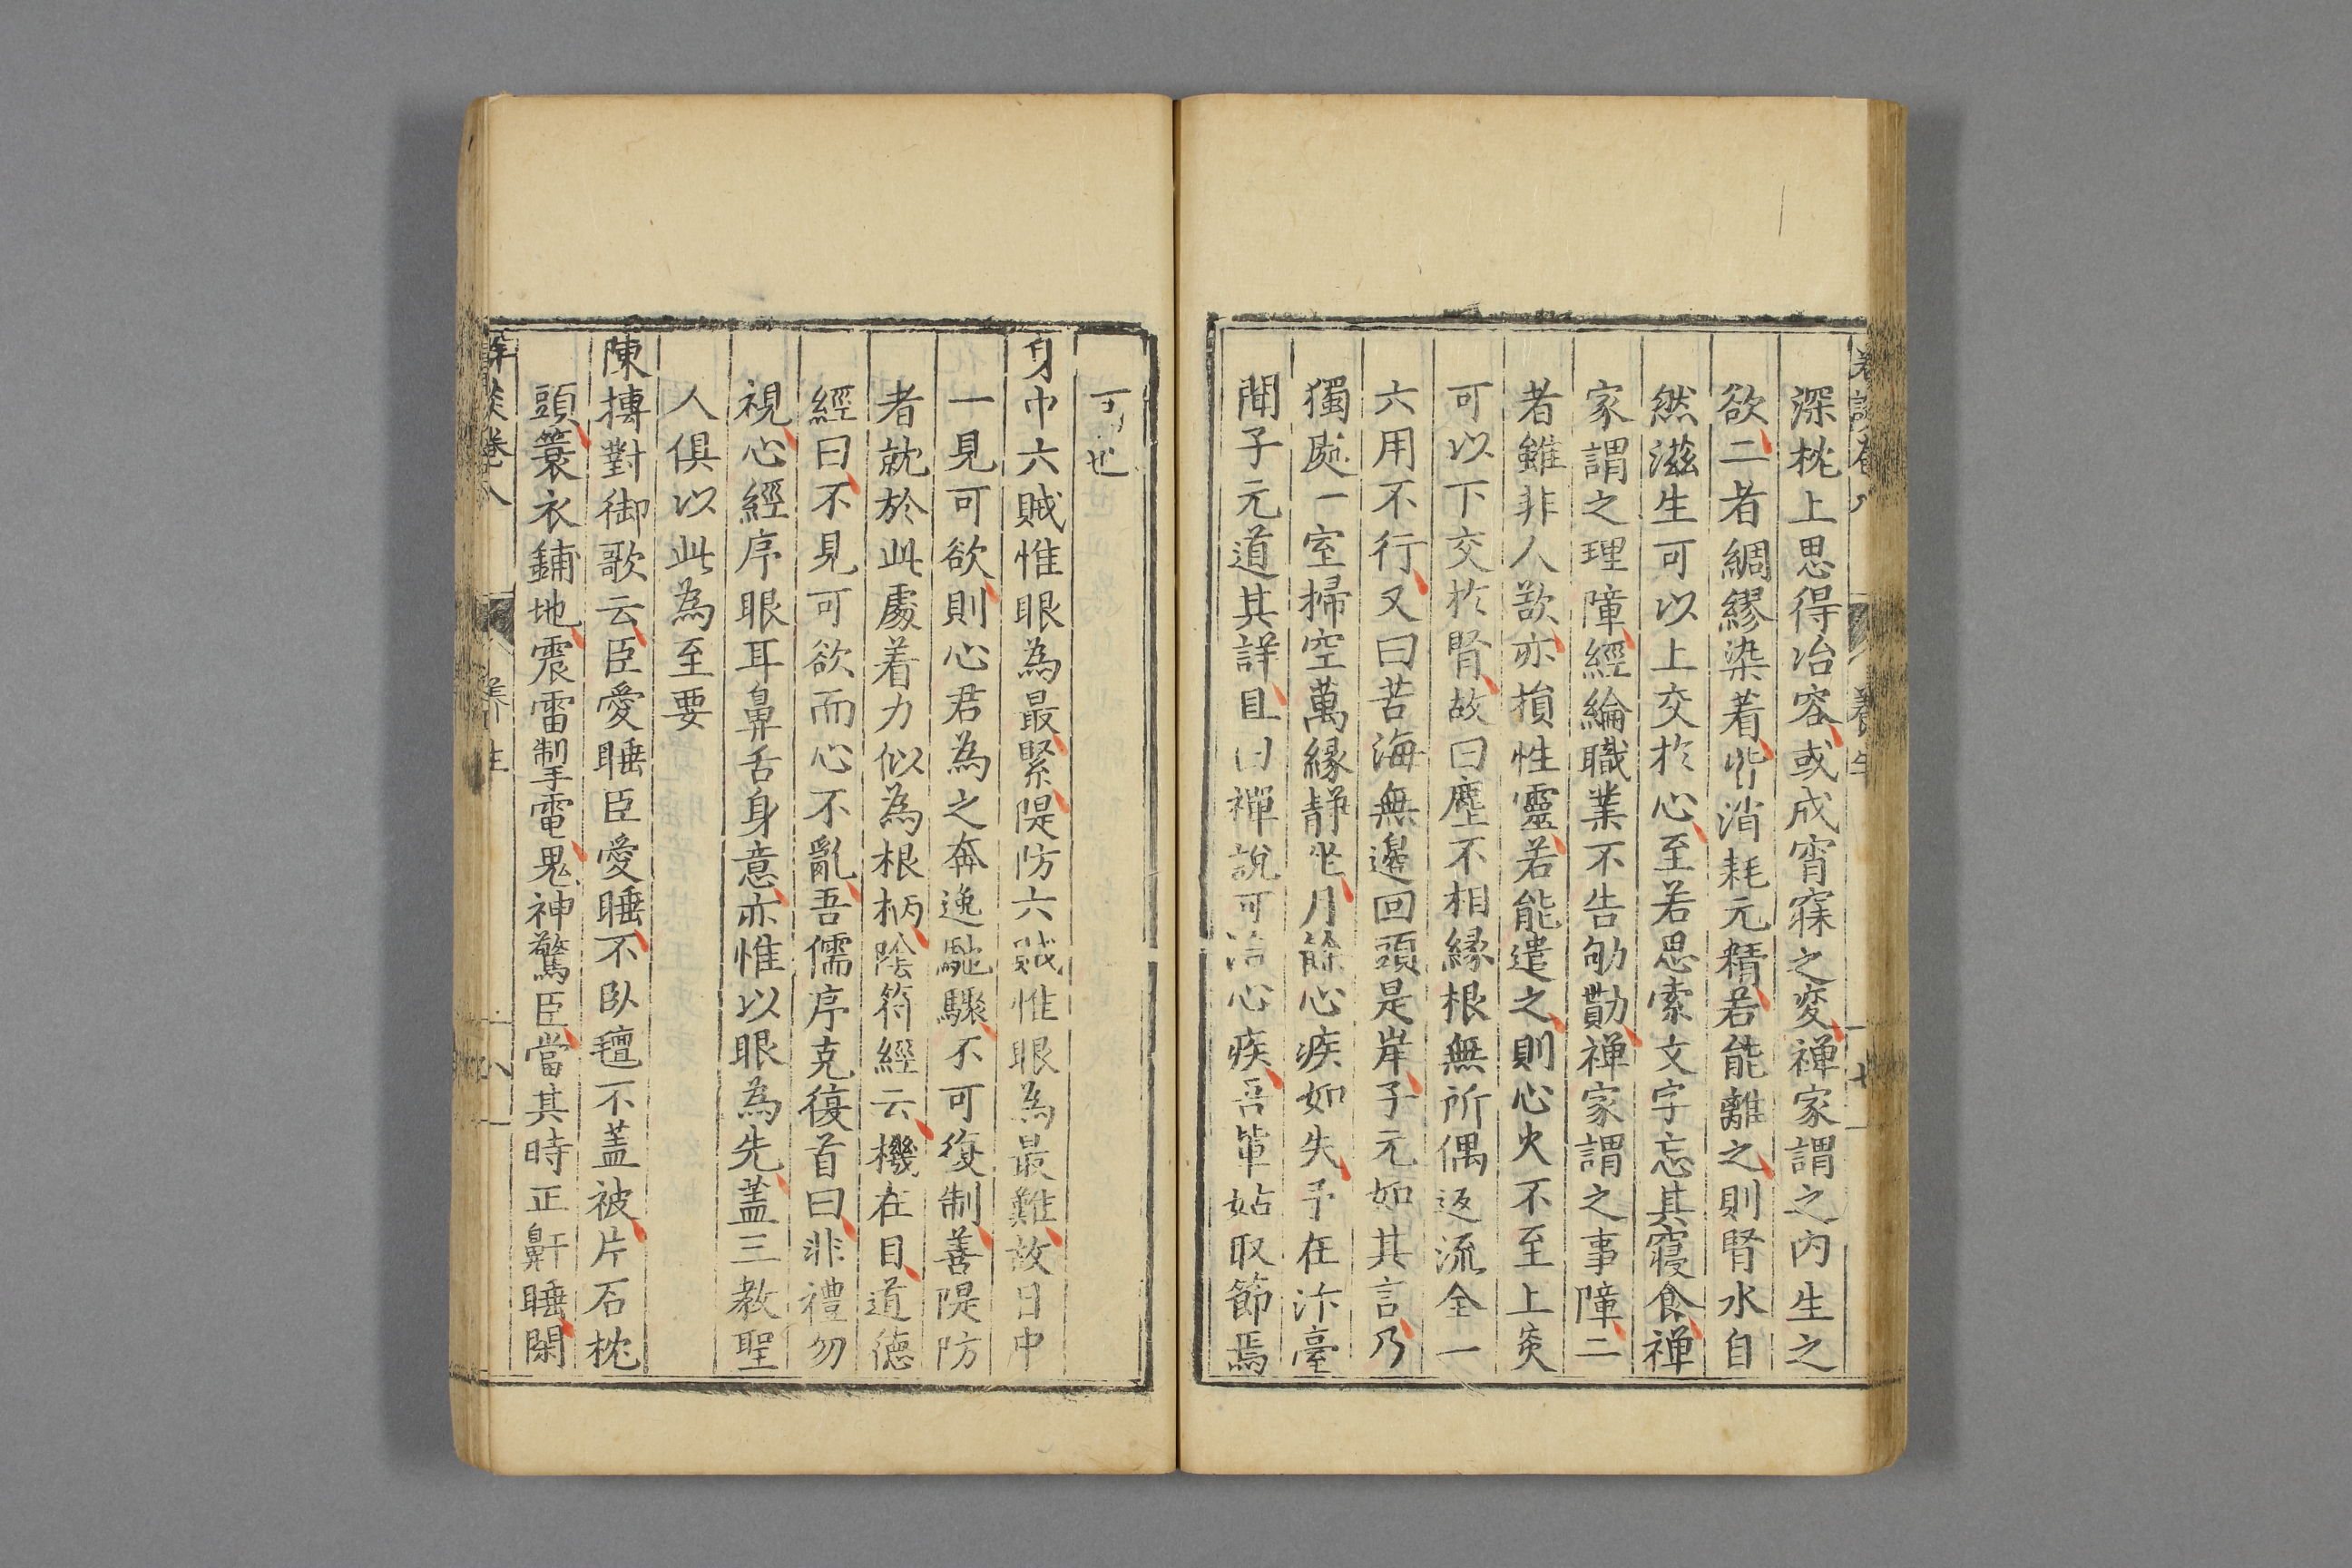 深枕上思得冶容或成宵寐之変禅家謂之內生之
欲二者綢繆染着皆消耗元精若能離之則腎水自
然滋生可以上交於心至若思索文字忘其寢食禅
家謂之理障經綸職業不告劬勩禅家謂之事障二
者雖非人欲亦損性靈若能遣之則心火不至上炎
可以下交於腎故曰塵不相緣根無所偶返流全一
六用不行又曰苦海無邊回頭是岸子元如其言乃
獨處一室掃空萬緣靜坐月餘心疾如失予在汴臺
聞子元道其詳且曰禪說可治心疾吾輩姑取節焉
可也
身中六賊惟眼為最緊隄防六賊惟眼為最難故日中
一見可欲則心君為之奔逸馳驟不可復制善隄防
者就於此處着力似為根柄陰符經云機在目道德
經曰不見可欲而心不亂吾儒序克復首曰非禮勿
視心經序眼耳鼻舌身意亦惟以眼為先盖三教聖
人俱以此為至要
陳摶對御歌云臣愛睡臣愛睡不臥氊不盖被片石枕
頭簑衣鋪地震雷掣電鬼神驚臣當其時正鼾睡閑
卷八
養生
八